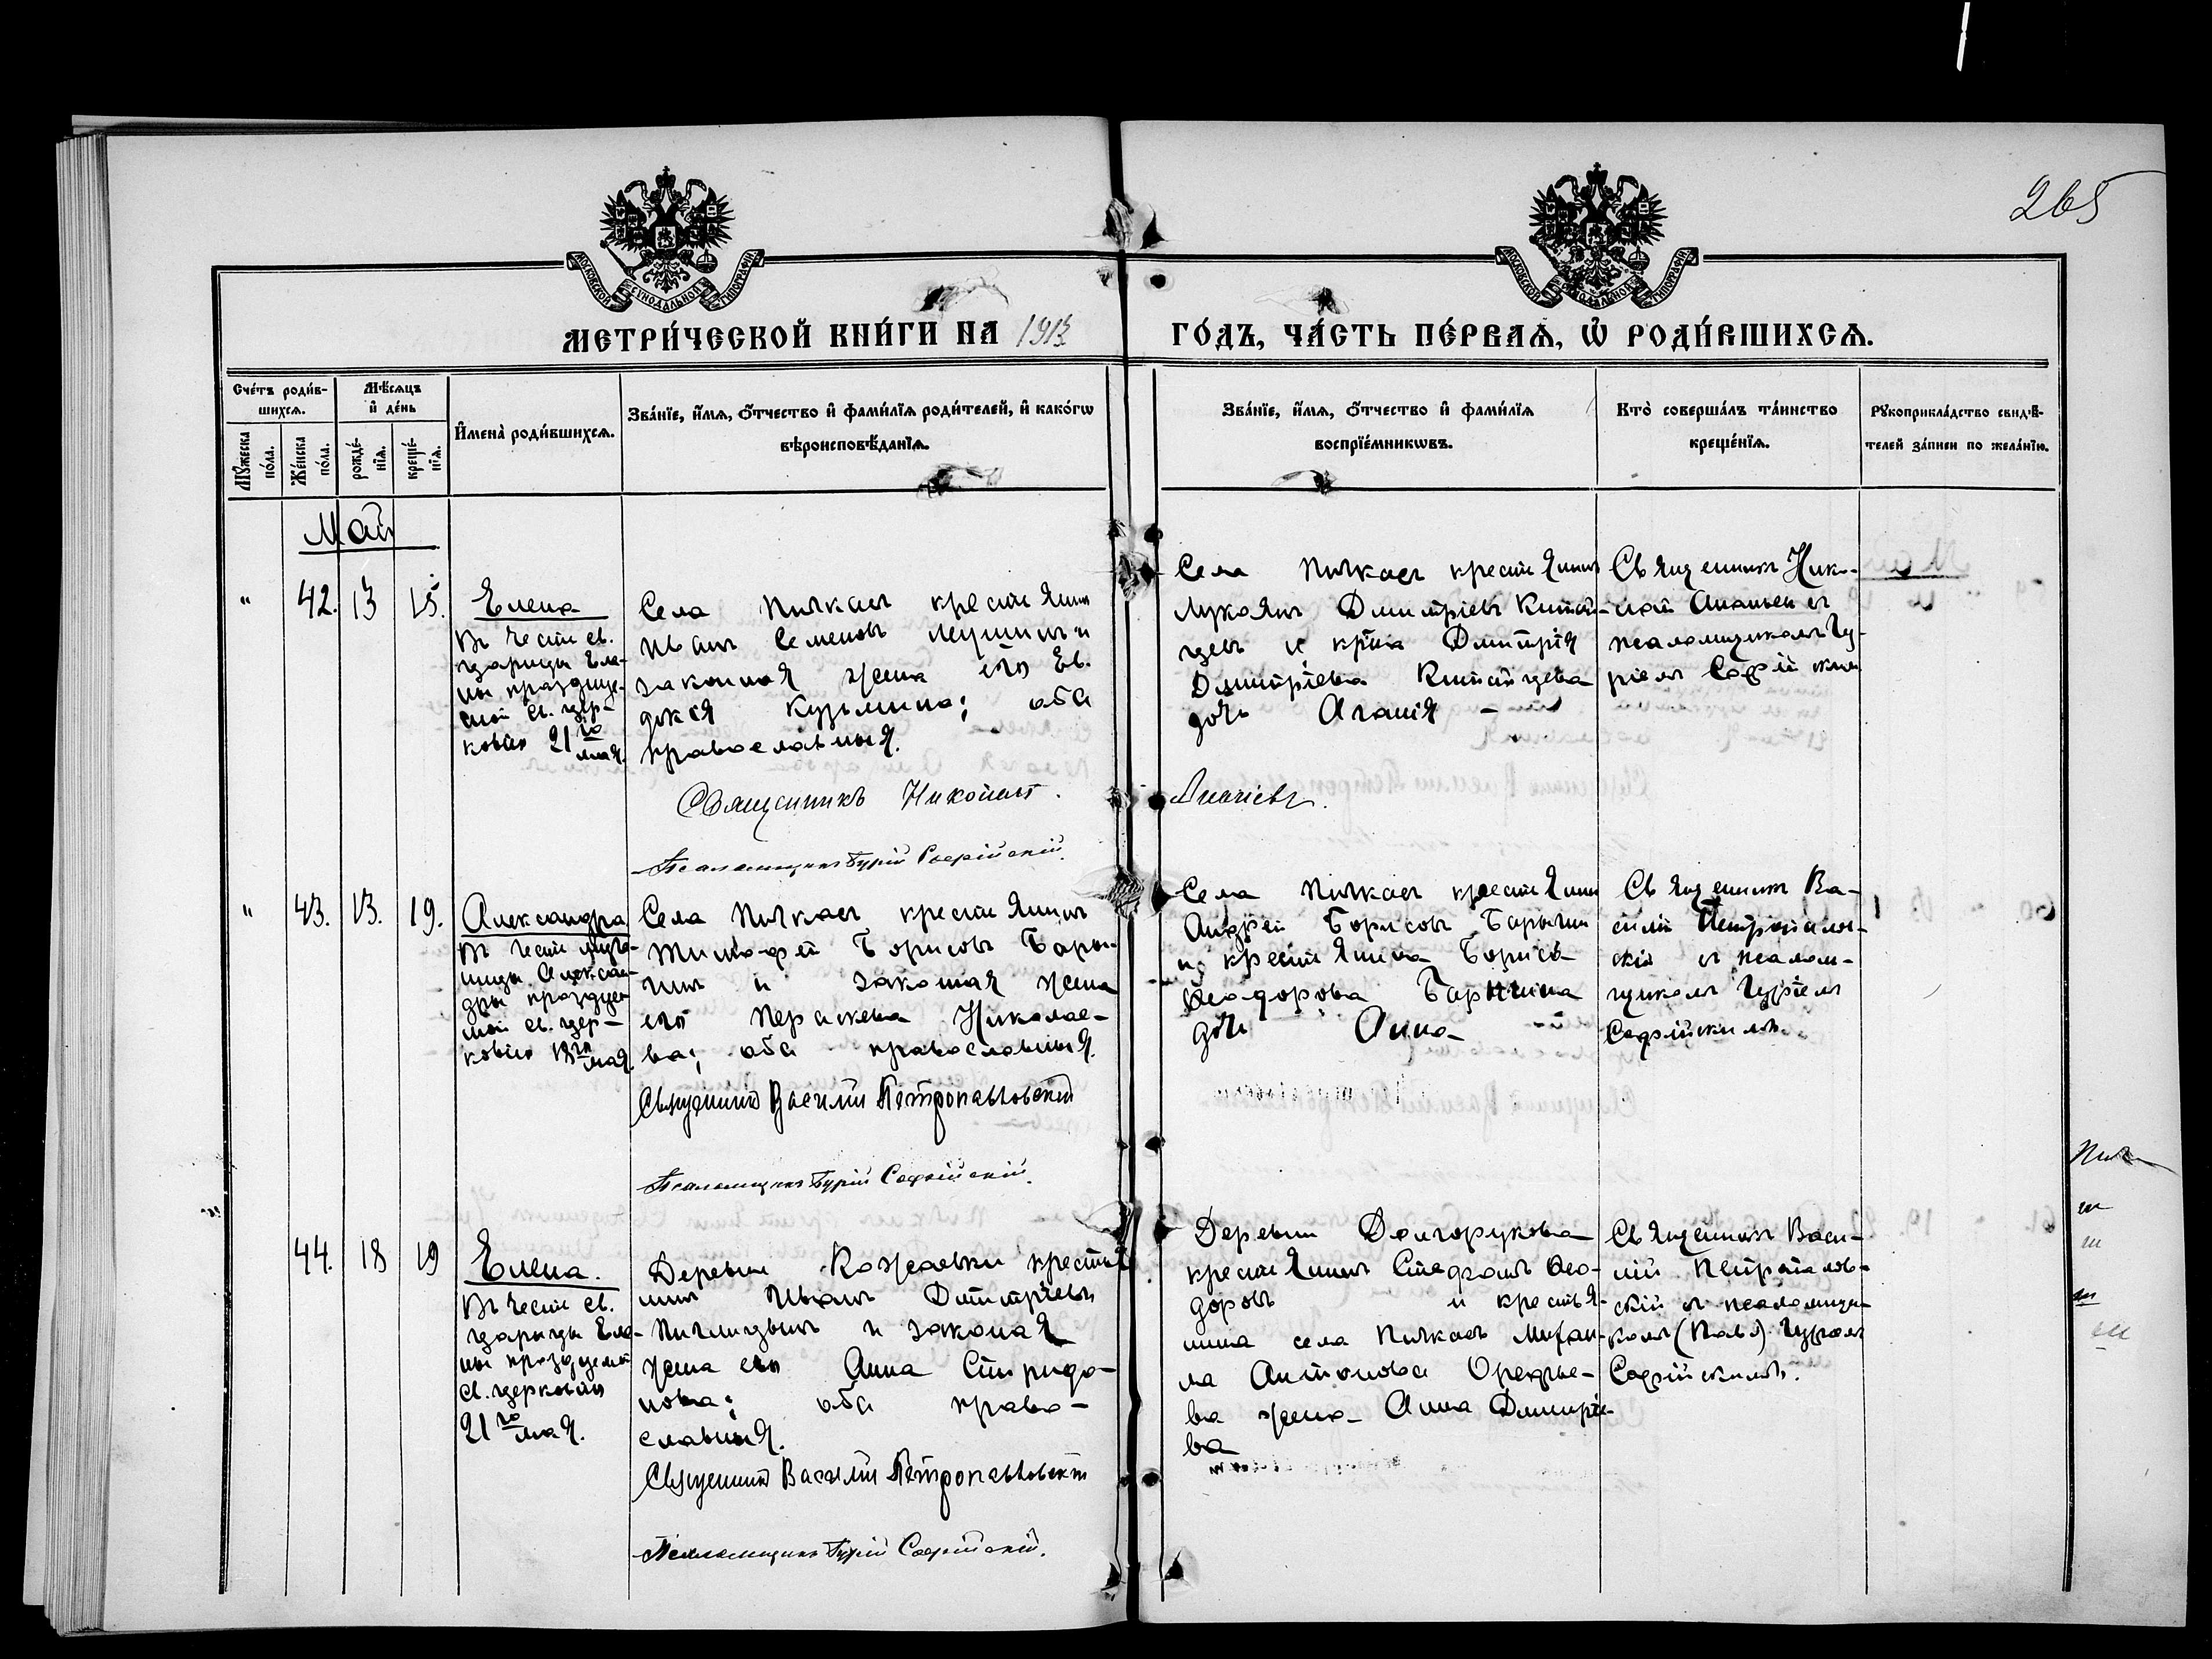 265
МОСКОВСКОЙ СѴНОДАЛЬНОЙ ТИПОГРАФІИ
МОСКОВСКОЙ СѴНОДАЛЬНОЙ ТИПОГРАФІИ
МЕТРИ́ЧЕСКОЙ КНИ́ГИ НА 1913 ГО́ДЪ, ЧА́СТЬ ПЕ́РВАѦ, Ѡ҆ РОДИ́ВШИХСѦ.
Сче́тъ роди́в-
шихсѧ.
Мѣ́сѧцъ
и҆ де́нь
Мꙋ́жеска по́ла.
Же́нска по́ла.
рожде́-
нїѧ.
креще́-
нїѧ.
И҆мена̀ роди́вшихсѧ.
Зва́нїе, и҆́мѧ, ѻ҆́тчество и҆ фами́лїѧ роди́телей, и҆ како́гѡ
вѣроисповѣ́данїѧ.
Зва́нїе, и҆́мѧ, ѻ҆́тчество и҆ фами́лїѧ
воспрїе́мникѡвъ.
Кто̀ соверша́лъ та́инство
креще́нїѧ.
Рꙋкоприкла́дство свидѣ́-
телей за́писи по жела́нїю.
Май
" 42. 13 15. Елена
Въ честь св.
царицы Еле-
ны празднуе-
мой св. цер-
ковію 21го мая.
Села Пичкасъ крестьянинъ
Иванъ Семеновъ и
законная жена его Ев-
докія Кузьмина; оба
православныя.
Священникъ Николай
Псаломщикъ Гурій Софійскій.
Села Пичкасъ крестьянинъ
Лукоянъ Дмитріевъ Китай-
цевъ и крᲂ-на Дмитрія
Дмитріева Китайцева
дочь Агапія
Ананьевъ.
Священникъ Нико-
лай Ананьевъ съ
псаломщикомъ Гу-
ріемъ Софійскимъ
" 43. 13. 19. Александра
Въ честь муче-
ницы Алексан-
дры празднуе-
мой св. цер-
ковію 18го мая.
Села Пичкасъ крестьянинъ
Тимофей Борисовъ Бары-
гинъ и законная жена
его Параскева Николае-
ва; оба православныя.
Священникъ Василій Петропавловскій
Псаломщикъ Гурій Софійскій.
Села Пичкасъ крестьянинъ
Андрей Борисовъ
и крестьянина Бориса
Ѳеодорова
дочь Анна
Священникъ Ва-
силій Петропавлов-
скій съ псалом-
щикомъ Гуріемъ
Софійскимъ.
44. 18 19 Елена.
Въ честь св.
царицы Еле-
ны празднуемой
св. церковію
21го мая.
Деревни Кожаевки крестья-
нинъ Иванъ Дмитріевъ
и законная
жена его Анна Спиридо-
нова; оба право-
славныя.
Священникъ Василій Петропавловскій
Псаломщикъ Гурій Софійскій.
Деревни Долгорукова
крестьянинъ Стефанъ Ѳео-
доровъ и крестья-
нина села Пичкасъ Михаи-
ла Антонова Орефье-
ва жена Анна Дмитріе-
ва
Священникъ Васи-
лій Петропавлов-
скій съ псаломщи-
комъ Гуріемъ
Софійскимъ.